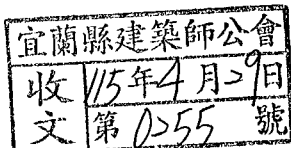 宜蘭縣建築師公會
收文
115年4月29日
第0255號